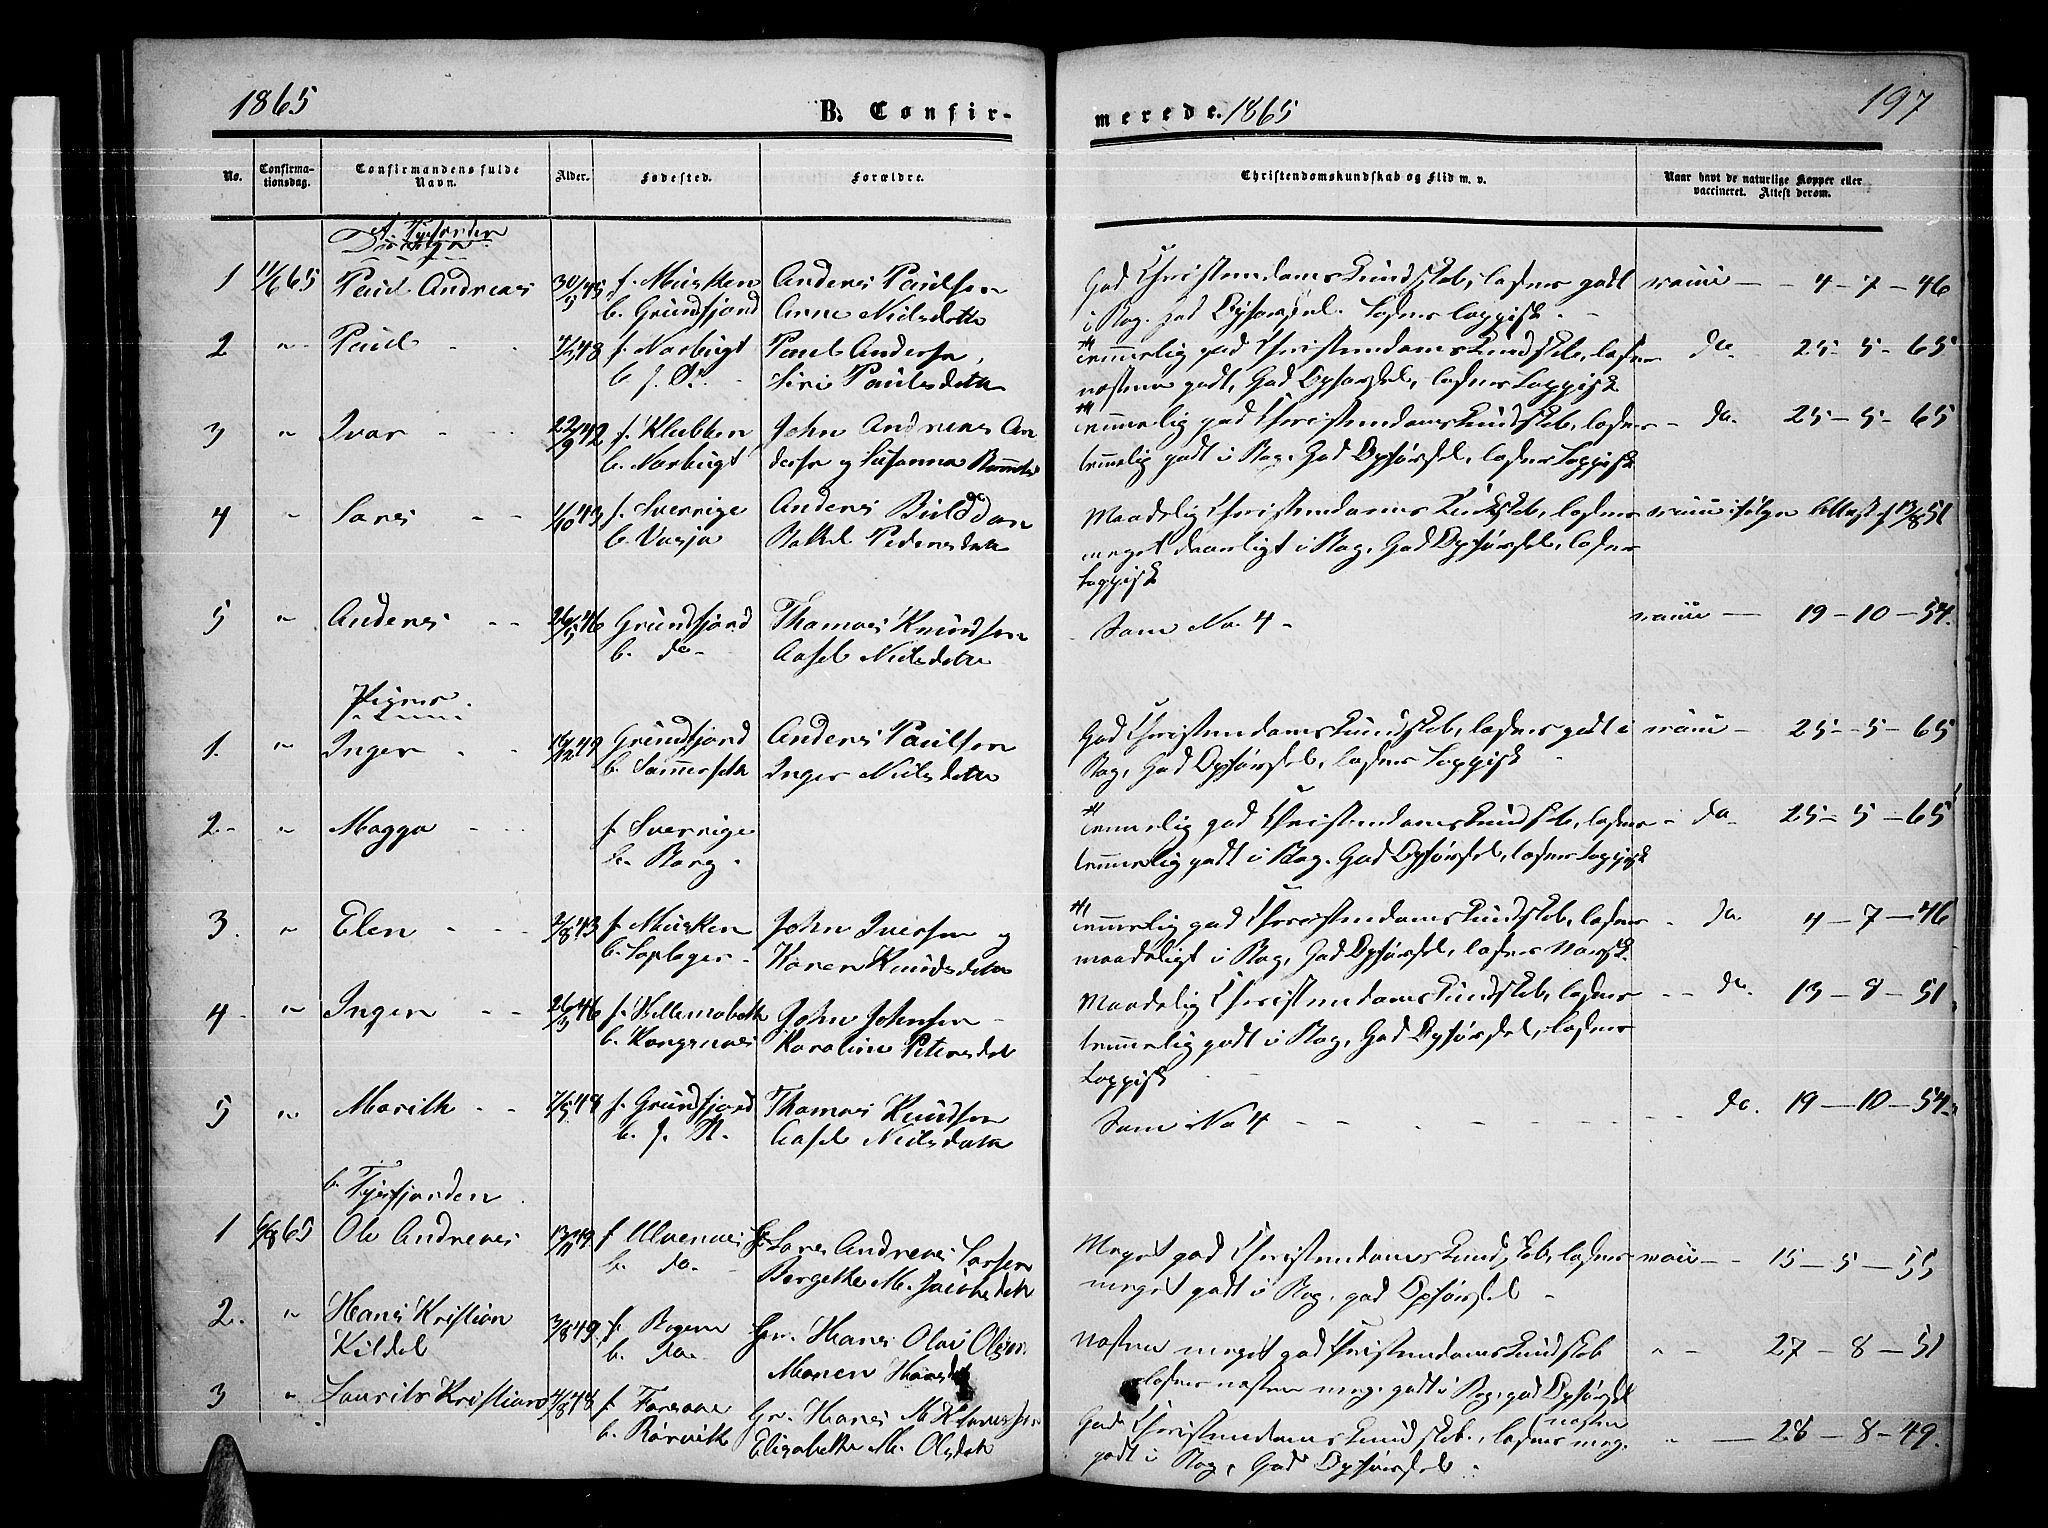 1865
B. Confir-
merede. 1865
197
No.
Confirma-
tionsdag.
Confirmandens fulde
Navn.
Alder.
Fødested.
Forældre.
Christendomskundskab og Flid m. v.
Naar havt de naturlige Kopper eller
vaccineret. Attest derom.
A. Tysfjorden
Drenge.
1 11/6 65 Paul Andreas 30/5 45 f. Musken Anders Paulsen God Christendomskundskab, læser godt vaccine - 4 - 7 - 46
b. Grundfjord Anne Nielsdatter i Bog. God Opførsel. Læser Lappisk.
2 " Paul 48 f. Norbugt Paul Andersen, Temmelig god Christendomskundskab, læser do. 25 - 5 - 65
Siri Paulsdatter næsten godt, God Opførsel, læser Lappisk
3 " Ivar 22/9 42 f. Klubben John Andreas An- Temmelig god Christendomskundskab, læser do. 25 - 5 - 65
b. Norbugt dersen og Susanna temmelig godt i Bog, God Opførsel, læser Lappisk
4 " Lars 1/10 43 f. Sverrige Anders Maadelig Christendomskundskab, læser vaccine ifølge Attest af 13/8 51
b. Vasja Pedersdatter meget daarligt i Bog, God Opførsel, læser
Lappisk
5 " Anders 26/5 46 Grundfjord Thomas Knudsen Som No. 4 vaccine - 19 - 10 - 54.
b. do Aasel Nielsdatter
Piger.
1. " Inger Grundfjord Anders Paulsen God Christendomskundskab, læser godt i vaccine - 25 - 5 - 65
b. Sommersæth Inger Nielsdatter Bog, God Opførsel, læser Lappisk
2. " Magga f. Sverrige Temmelig god Christendomskundskab, læser do. 25 - 5 - 65
b. Borg. temmelig godt i Bog. God Opførsel, læser Lappisk
3. " Elen 43 f. Musken John Iversen og Temmelig god Christendomskundskab, læser do. 4 - 7 - 46
Karen Knudsdatter maadeligt i Bog, God Opførsel, læser Norsk.
4 " Inger 26/3 46 John Johnsen Maadelig Christendomskundskab, læser do. 13 - 8 - 51
b. Kongsnæs Karoline Petersdatter temmelig godt i Bog, God Opførsel, læser
Lappisk
5 " Marith 7/5 48 f. Grundfjord Thomas Knudsen Som No 4 do. 19 - 10 - 54
Aasel Nielsdatter
b. Tysfjorden
1 6/8 65 Ole Andreas 13/11 49 f. Ulvenæs Lars Andreas Larsen Meget god Christendomskundskab, læser vacci - 15 - 5 - 55
b. do. Bergethe M. Jacobsdatter meget godt i Bog, god Opførsel
2. " Hans Kristian 3/8 49 f. Bogen Gr. Hans Olai Olsen Næsten meget god Christendomskundskab " 27 - 8 - 51
Kildal b. do. Maren læser næsten meg. godt i Bog, god Opførsel
3 " Laurits Kristian 4/8 48 f. Forsaae Gr. Hans M. Klaussen God Christendomskundskab, læser næsten meg. " 28 - 8 - 49.
b. Rørvik Elizabethe M. Olsdatter godt i Bog, God Opførsel.